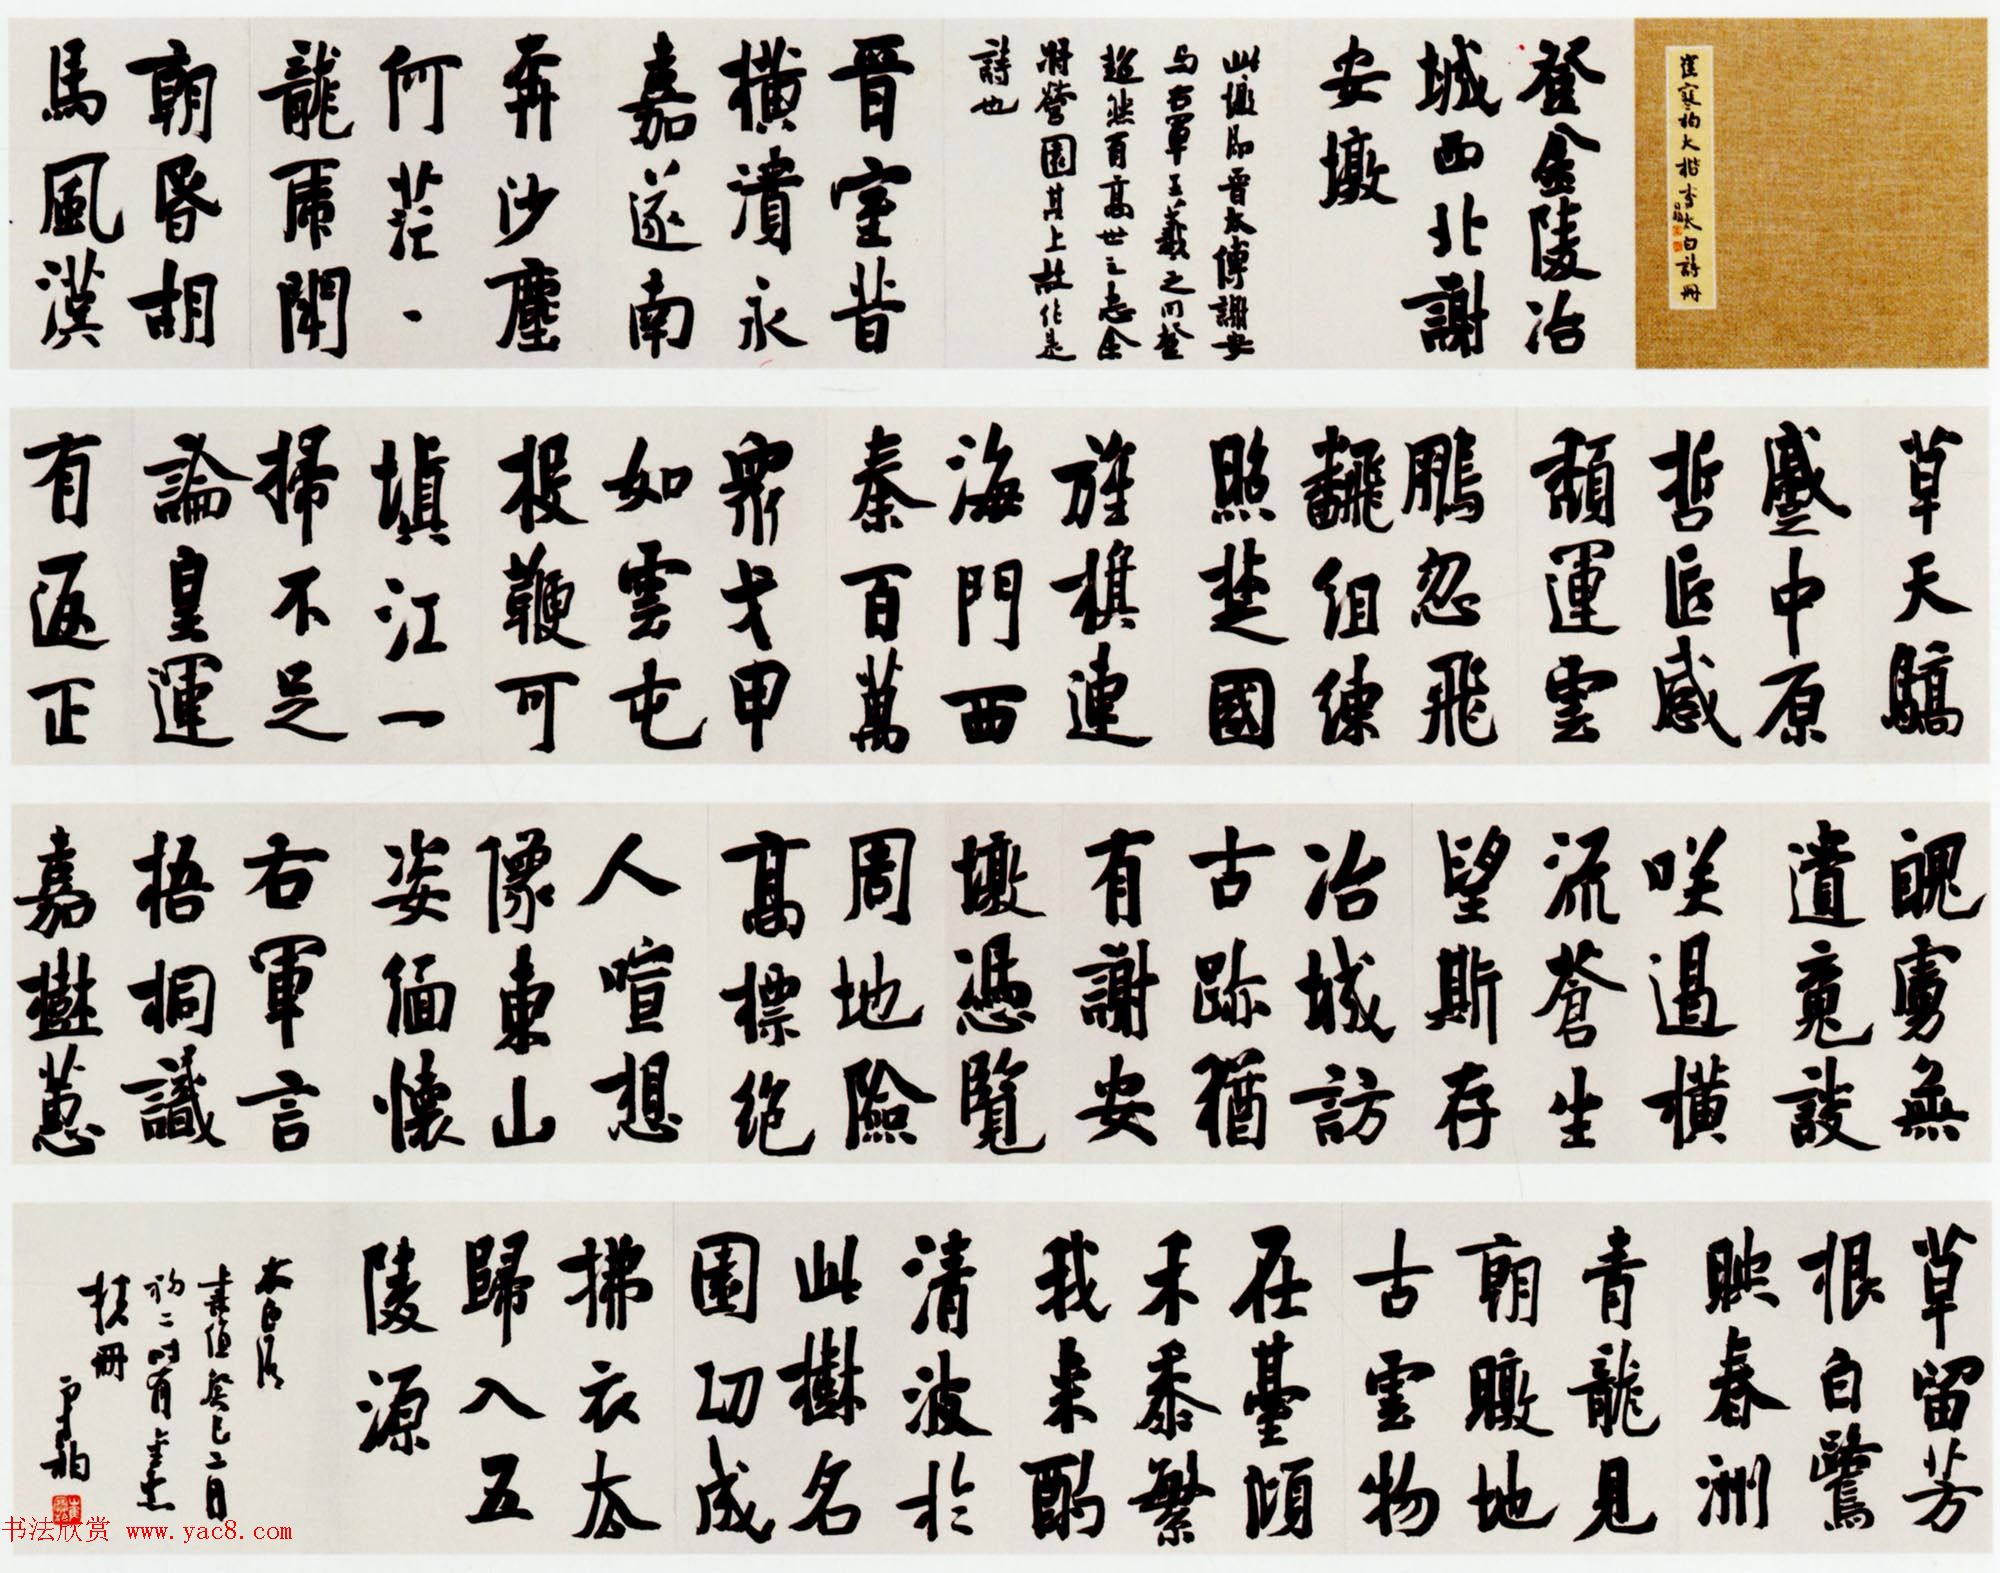 崔寒柏大楷李太白詩冊
登金陵冶
城西北謝
安墩
此墩即晉太傅謝安
与右軍王羲之同登
超然有高世之志余
将營園其上故作是
詩也
晉室昔
橫潰永
嘉遂南
奔沙塵
何茫、
龍虎鬭
朝昏胡
馬風漢
草天驕
蹙中原
哲匠感
頽運雲
鵬忽飛
飜組練
照楚國
旌旗連
海門西
秦百萬
衆戈甲
如雲屯
投鞭可
填江一
掃不足
論皇運
有返正
醜虜無
遺竟談
咲遏橫
流蒼生
望斯存
冶城訪
古跡猶
有謝安
墩憑覽
周地險
高標絕
人喧想
像東山
姿緬懷
右軍言
梧桐識
嘉樹蕙
草留芳
根白鷺
映春洲
青龍見
朝暾地
古雲物
在臺傾
禾黍繁
我來酌
清波於
此樹名
園功成
拂衣去
歸入五
陵源
太白詩
書值癸巳二月
初二時有
冊
寒柏
书法欣赏 www.yac8.com